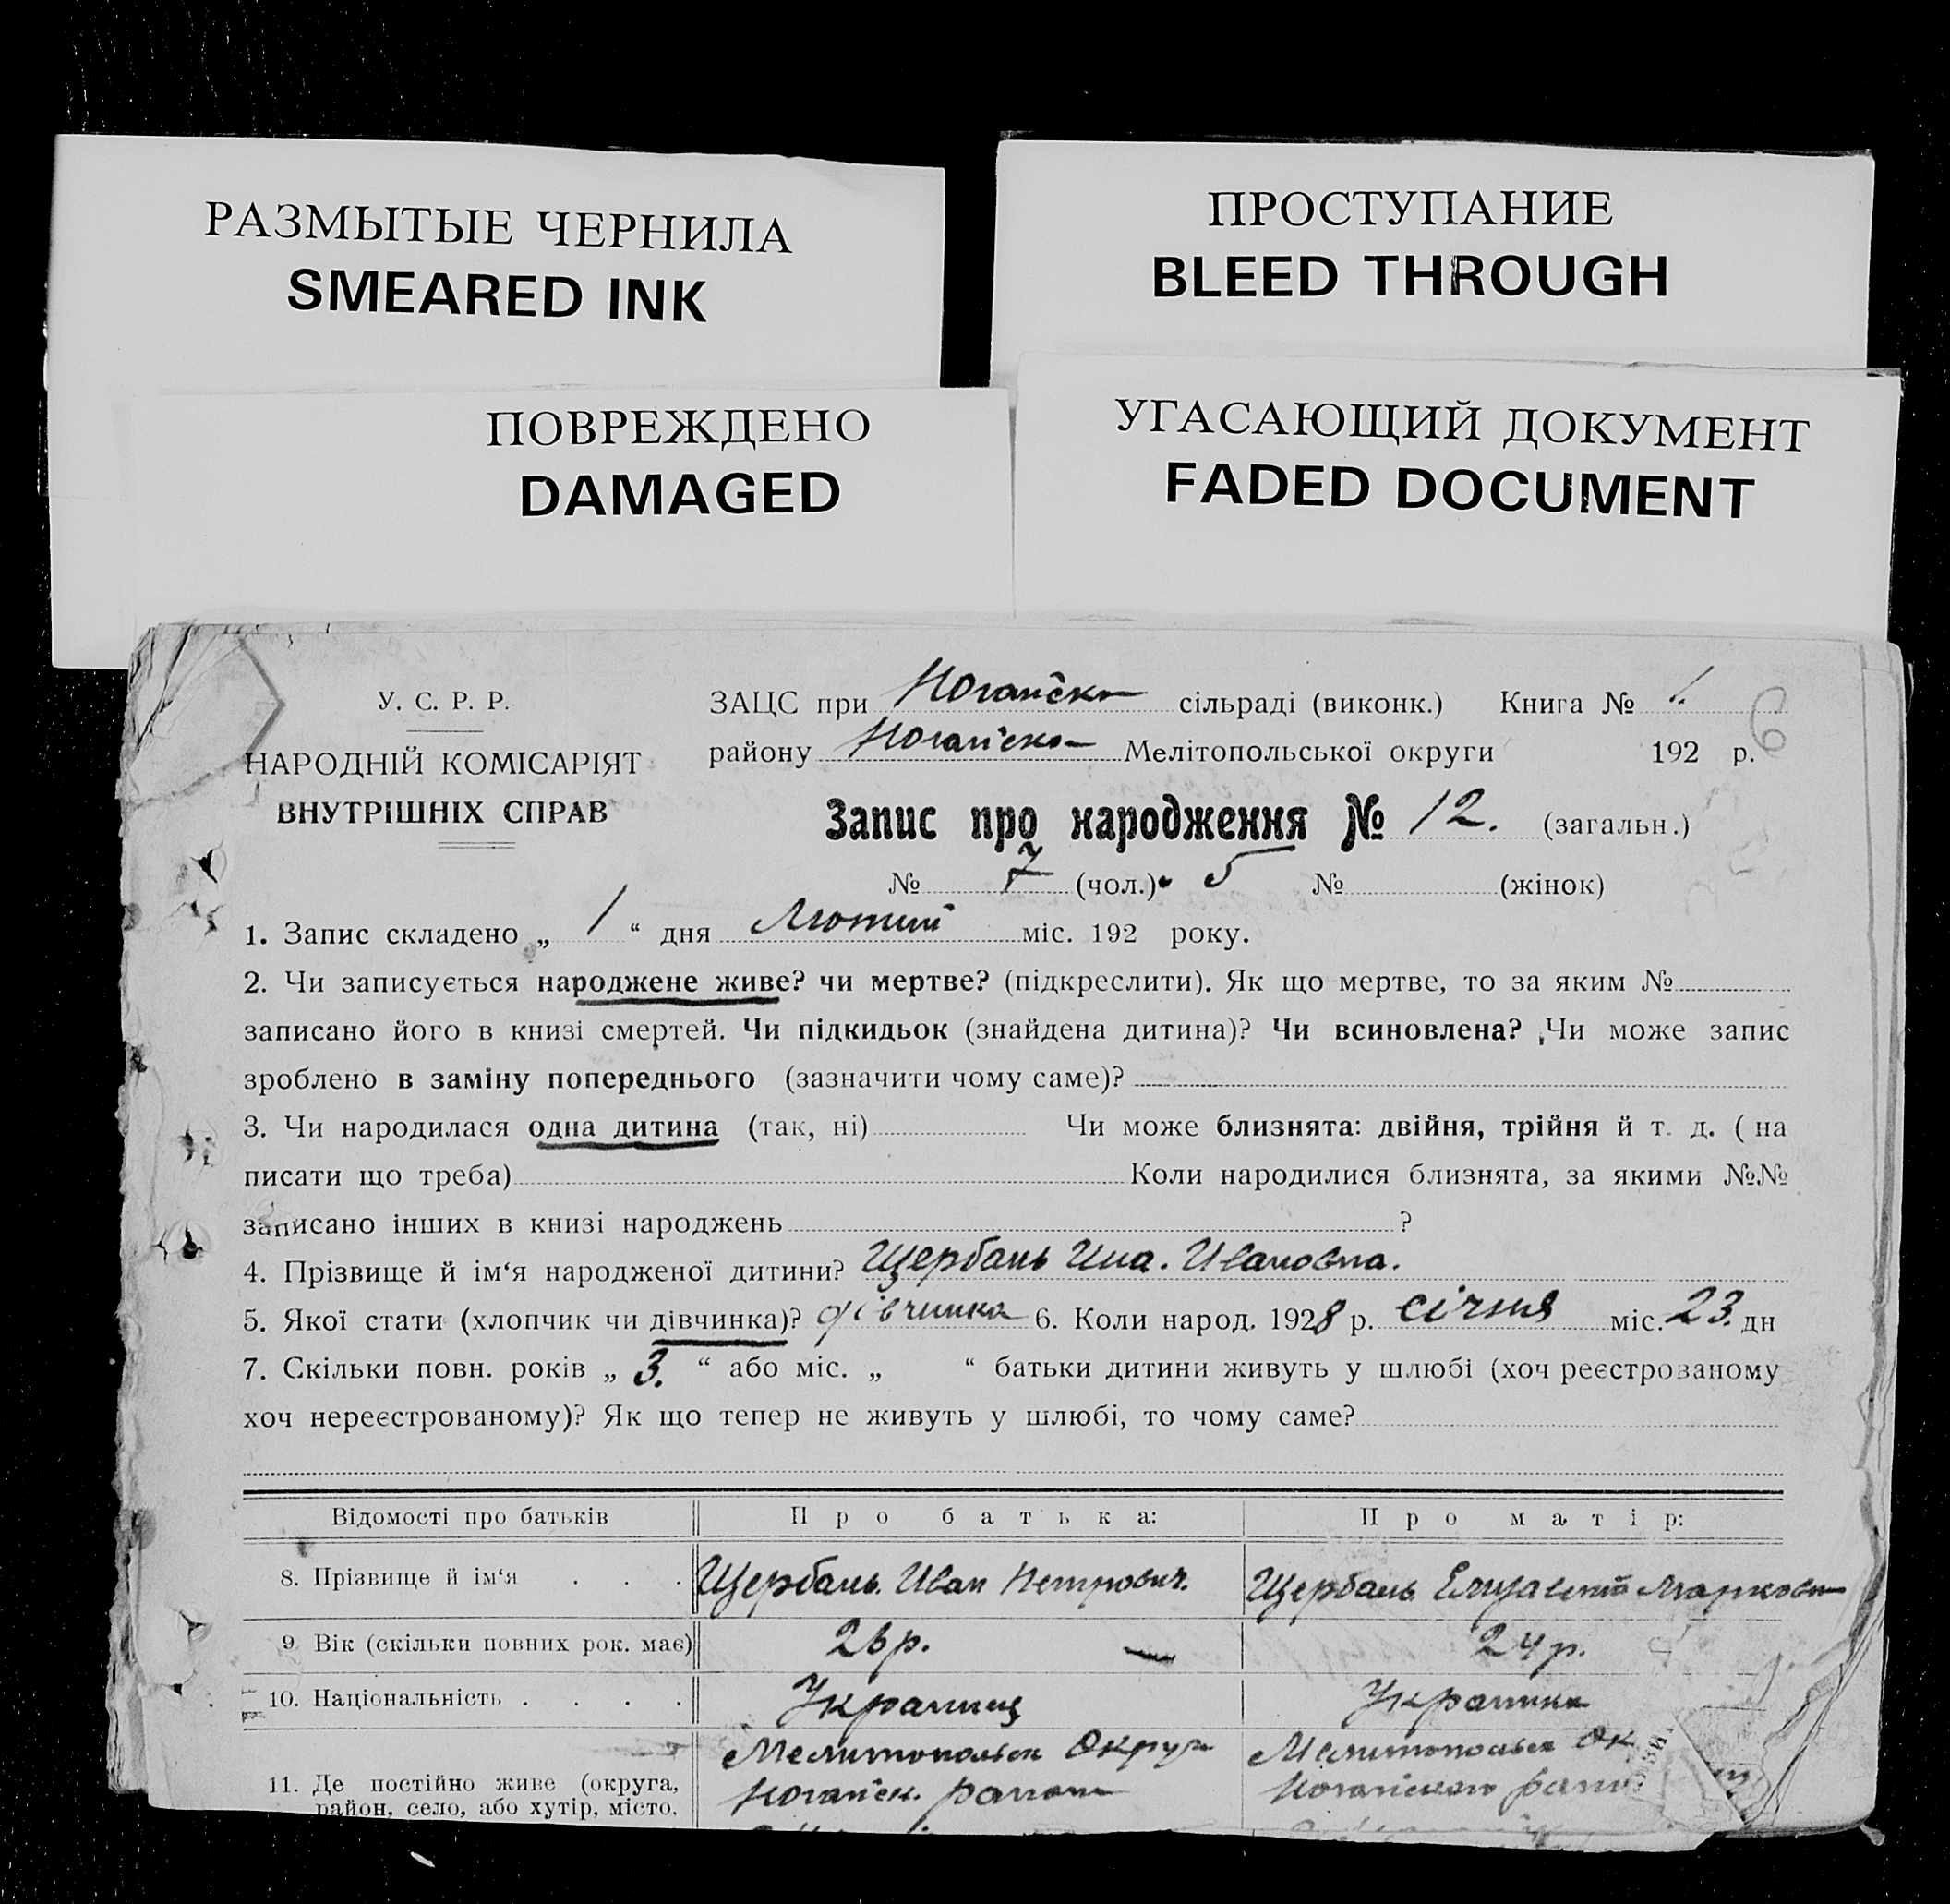 РАЗМЫТЫЕ ЧЕРНИЛА
SMEARED INK
ПРОСТУПАНИЕ
BLEED THROUGH
ПОВРЕЖДЕНО
DAMAGED
УГАСАЮЩИЙ ДОКУМЕНТ
FADED DOCUMENT
У. С. Р. Р.
НАРОДНІЙ КОМІСАРІЯТ
ВНУТРІШНІХ СПРАВ
ЗАЦС при Ногайско сільраді (виконк.) Книга № 1. 6
району Ногайско Мелітопольської округи 192 р.
Запис про народження № 12. (загальн.)
№ 7 (чол.) 5 № (жінок)
1. Запис складено „ 1 “ дня Лютий міс. 192 року.
2. Чи записується народжене живе? чи мертве? (підкреслити). Як що мертве, то за яким №
записано його в книзі смертей. Чи підкидьок (знайдена дитина)? Чи всиновлена? Чи може запис
зроблено в заміну попереднього (зазначити чому саме)?
3. Чи народилася одна дитина (так, ні) Чи може близнята: двійня, трійня й т. д. ( на
писати що треба) Коли народилися близнята, за якими №№
записано інших в книзі народжень ?
4. Прізвище й ім‘я народженої дитини? Щербань Ина. Ивановна.
5. Якої стати (хлопчик чи дівчинка)? дівчинка 6. Коли народ. 1928 р. січня міс. 23. дн
7. Скільки повн. років „ 3. “ або міс. „ “ батьки дитини живуть у шлюбі (хоч реєстрованому
хоч нереєстрованому)? Як що тепер не живуть у шлюбі, то чому саме?
Відомості про батьків Про батька: Про матір:
8. Прізвище й ім‘я . . . Щербань. Иван Петрович. Щербань Елизавета Маркови
9 Вік (скільки повних рок. має) 26 р. — 24 р.
10. Національність . . . . Украинец Украинка
11. Де постійно живе (округа, Мелитопольск Округи Мелитопольск Ок
район, село, або хутір, місто, Ногайск. району Ногайского райо